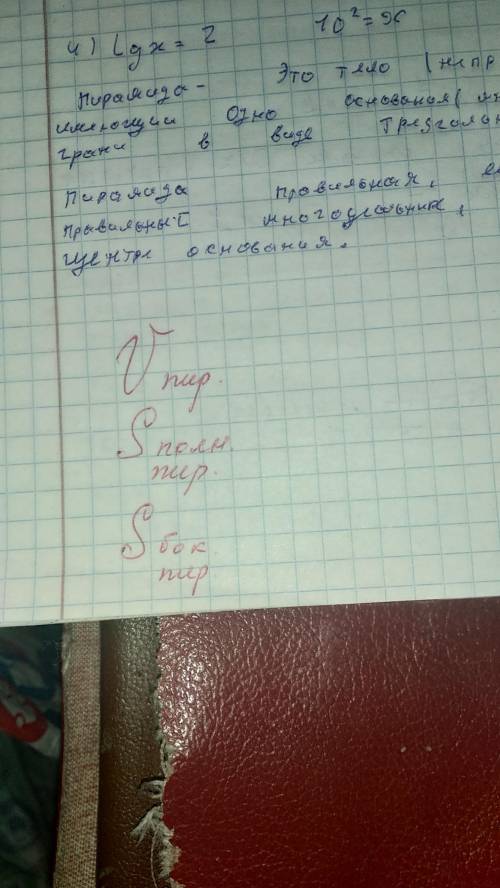 4) Lgx = 2 10² = x
Пирамида - Это тело (непр
имеющии одно основания (мн
грани в виде треугольн
Пирамида правильная, ес
правильный многоугольник,
центре основания.
V пир.
S полн.
пир.
S бок
пир